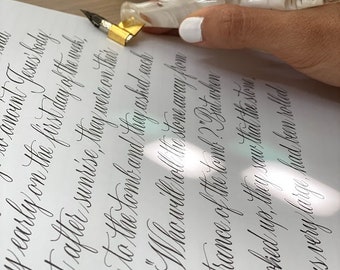 to anoint Jesus' body.
y early on the first day of the week
t after sunrise, they were on
to the tomb and they asked each
"Who will roll the stone away from
trance of the tomb? But when
ked up, they saw that the stone
s very large, had been rolled